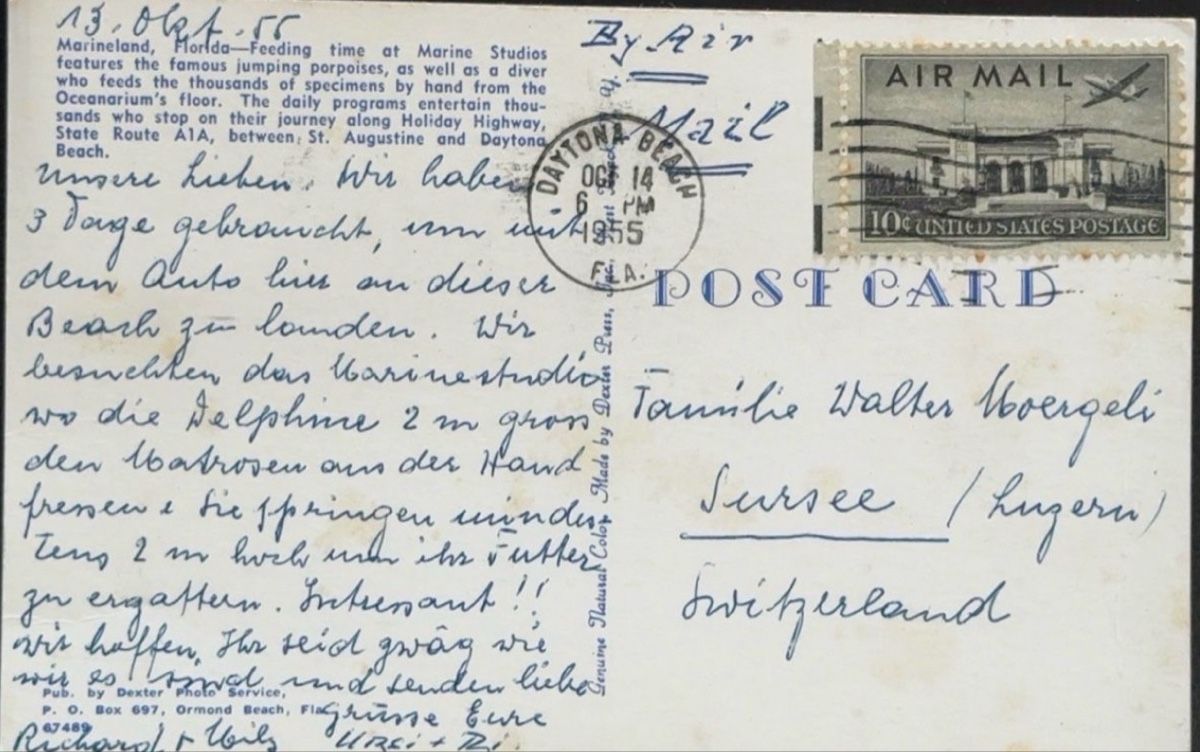 13. Okt. 55
Marineland, Florida—Feeding time at Marine Studios
features the famous jumping porpoises, as well as a diver
who feeds the thousands of specimens by hand from the
Oceanarium's floor. The daily programs entertain thou-
sands who stop on their journey along Holiday Highway,
State Route A1A, between St. Augustine and Daytona
Beach.
Unsere Lieben. Wir haben
3 Tage gebraucht, um mit
dem Auto hier an dieser
Beach zu landen. Wir
besuchten das Marinestudio
wo die Delphine 2 m gross
den Matrosen aus der Hand
fressen & Sie springen mindes
tens 2 m hoch um ihr Futter
zu ergattern. Intressant!!
wir hoffen, Ihr seid gwäg wie
wir es sind und senden liebe
Grüsse Eure
Richard +
Pub. by Dexter Photo Service,
P. O. Box 697, Ormond Beach, Fla.
67489
Genuine Natural Color Made by Dexter Press,
By Air
Mail
DAYTONA BEACH
OCT 14
6 PM
1955
FLA.
AIR MAIL
10¢ UNITED STATES POSTAGE
POST CARD
Familie Walter Moergeli
Sursee (Luzern)
Switzerland